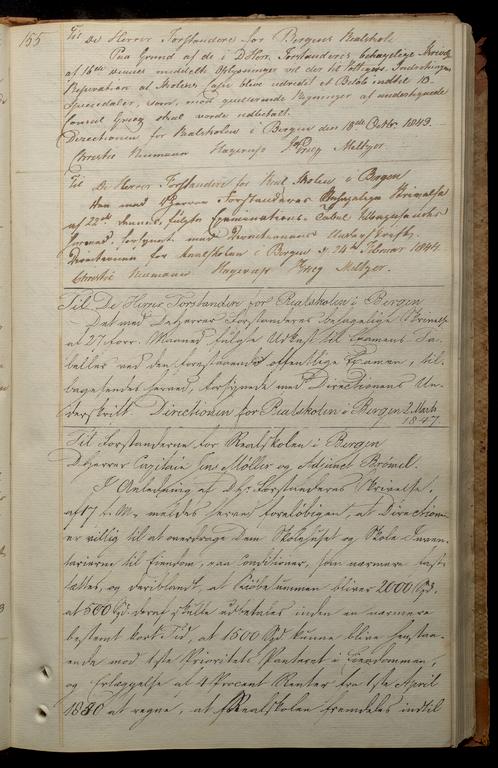 155
Til De Herrer Forstandere for Bergens Realskole
Paa Grund af de i D'Herr. Forstanderes behagelige Skrivelse
af 16de dennes meddelte Oplysninger vil der til
Reparation at Skolens Casse blive udredet et Beløb indtil 10
Speciedaler, som, mod qvitterende Regninger af undertegnede
Consul Grieg skal vorde udbetalt.
Directionen for Realskolen i Bergen den 18de Octbr. 1843.
Christie Neumann Hagerup Grieg Meltzer
Til De Herrer Forstandere for Real Skolen i Bergen
Den med Herrer Forstanderes behagelige Skrivelse
af 22de dennes fulgte Examinations-Tabel tilbagesendes
herved, forsynet med Directionens Underskrift.
Directionen for Realskolen i Bergen d. 24de Februar 1844.
Christie Neumann Hagerup Grieg Meltzer.
Til De Herrer Forstandere for Realskolen i Bergen
Det med DeHerrer Forstanderes behagelige Skrivelse
af 27 forr. Maaned fulgte Udkast til Examens Ta-
beller ved den forestaaende offentlige Examen, til-
bagesendes herved, forsynede med Directionens Un-
derskrift. Directionen for Realskolen i Bergen 2 Marts
1847.
Til Forstanderne for Realskolen i Bergen
DHerrer Capitain Jn Møller og Adjunct Brömel.
I Anledning af DHr. Forstanderes Skrivelse,
af 17 f. M. meldes herved foreløbigen, at Directionen
er villig til at overdrage Dem Skolehuset og Skole Inven-
tarierne til Eiendom, paa Conditioner, som nærmere fast-
sættes, og deriblandt, at Kiøbesummen bliver 2000 Spd,
at 500 Spd. deraf skulle udbetales inden en nærmere
bestemt kort Tid, at 1500 Spd kunne blive henstaa-
ende mod 1ste Prioritets Panteret i Eiendommen,
og Erlæggelse af 4 Procent Renter fra 1ste April
1880 at regne, at Realskolen fremdeles indtil